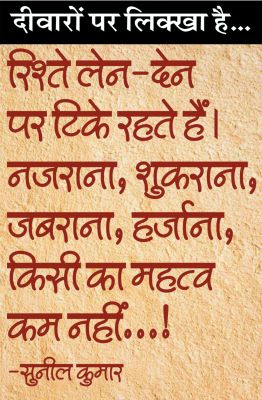 दीवारों पर लिक्खा है...
रिश्ते लेन-देन
पर टिके रहते हैं।
नजराना, शुकराना,
जबराना, हर्जाना,
किसी का महत्व
कम नहीं...!
-सुनील कुमार